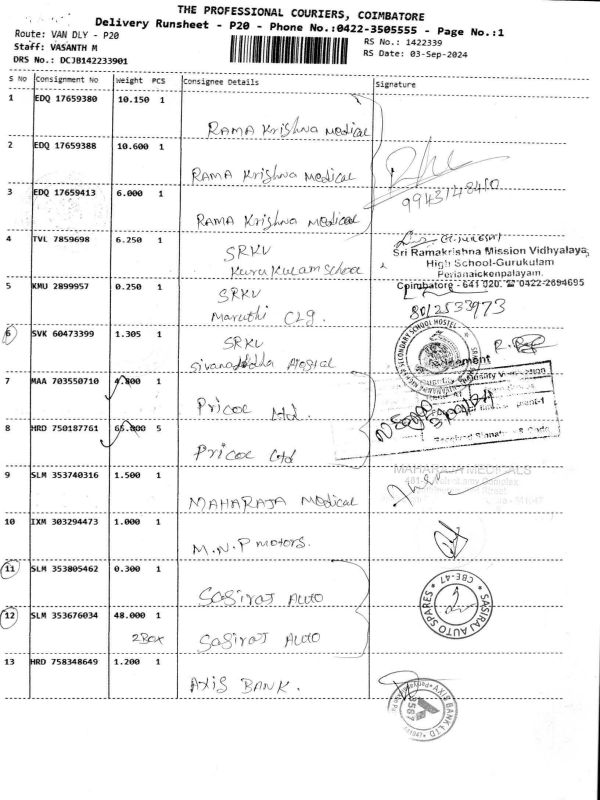 THE PROFESSIONAL COURIERS, COIMBATORE
Delivery Runsheet - P20 - Phone No.:0422-3505555 - Page No.:1
Route: VAN DLY - P20
Staff: VASANTH M
DRS No.: DCJB142233901
RS No.: 1422339
RS Date: 03-Sep-2024
S No Consignment No Weight PCS Consignee Details Signature
1 EDQ 17659380 10.150 1 RAMA Krishna Medical
2 EDQ 17659388 10.600 1 RAMA Krishna Medical
3 EDQ 17659413 6.000 1 RAMA Krishna Medical
4 TVL 7859698 6.250 1 SRKV
Sri Ramakrishna Mission Vidhyalaya,
High School-Gurukulam
Perianaickenpalayam,
Coimbatore - 641 020. ☎ 0422-2694695
5 KMU 2899957 0.250 1 SRKV
Maruthi Clg.
8012533973
6 SVK 60473399 1.305 1 SRKV
7 MAA 703550710 4.800 1 Pricol Ltd.
8 HRD 750187761 65.000 5 Pricol Ltd
9 SLM 353740316 1.500 1 MAHARAJA Medical
MAHARAJA MEDICALS
10 IXM 303294473 1.000 1 M.N.P Motors.
11 SLM 353805462 0.300 1 Sasiraj Auto
12 SLM 353676034 48.000 1 Sasiraj Auto
2 Box
SASIRAJ AUTO SPARES CBE-47
13 HRD 758348649 1.200 1 AXIS BANK.
AXIS BANK LTD